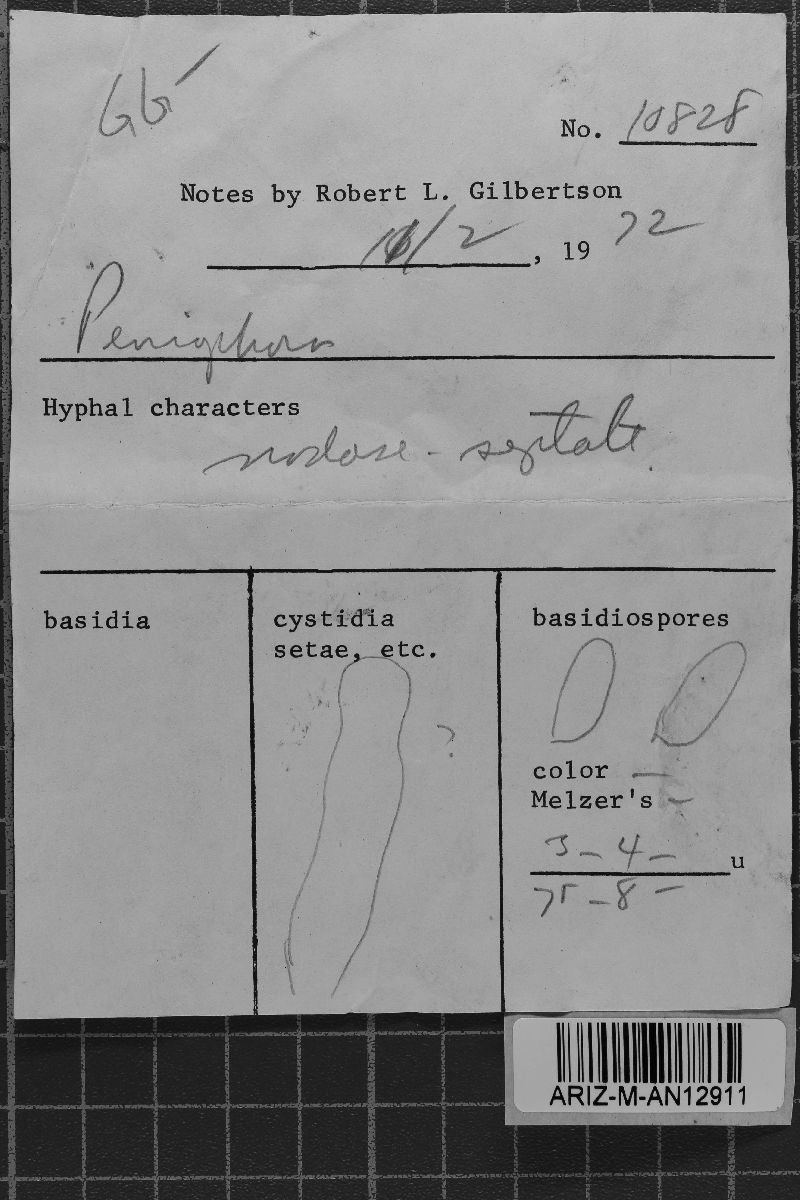 GG
No. 10828
Notes by Robert L. Gilbertson
/2, 19 72
Peniophora
Hyphal characters
nodose-septate.
basidia
cystidia
setae, etc.
?
basidiospores
color —
Melzer's –
3 – 4 – u
75 – 8 –
ARIZ-M-AN12911